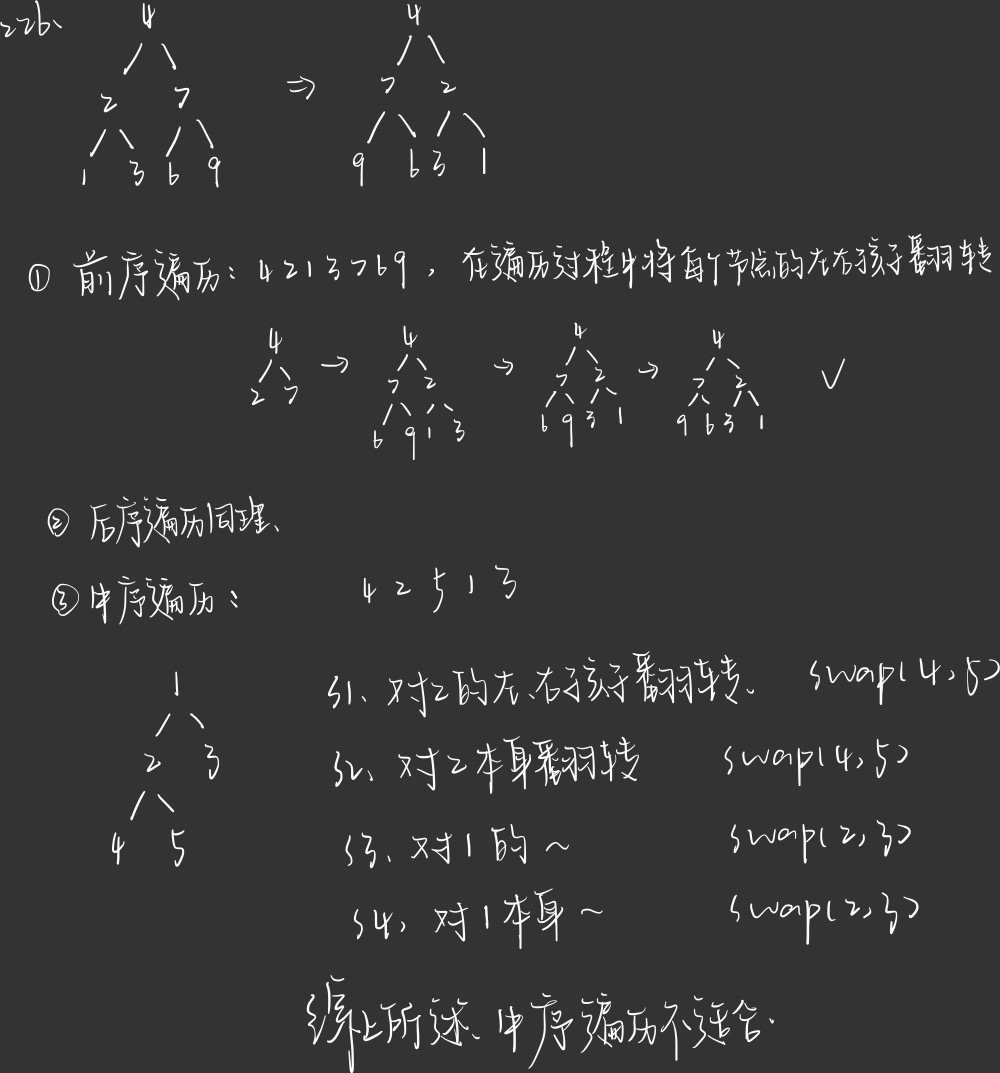 226、
4 ⇒ 4
2 7 7 2
1 3 6 9 9 6 3 1
① 前序遍历：4 2 1 3 7 6 9，在遍历过程中将每个节点的左右孩子翻转
4 → 4 → 4 → 4 ✓
2 7 7 2 7 2 7 2
6 9 1 3 6 9 3 1 9 6 3 1
② 后序遍历同理、
③ 中序遍历： 4 2 5 1 3
1
2 3
4 5
S1、对2的左、右孩子翻转、 swap(4,5)
S2、对2本身翻转 swap(4,5)
S3、对1的~ swap(2,3)
S4、对1本身~ swap(2,3)
综上所述、中序遍历不适合.